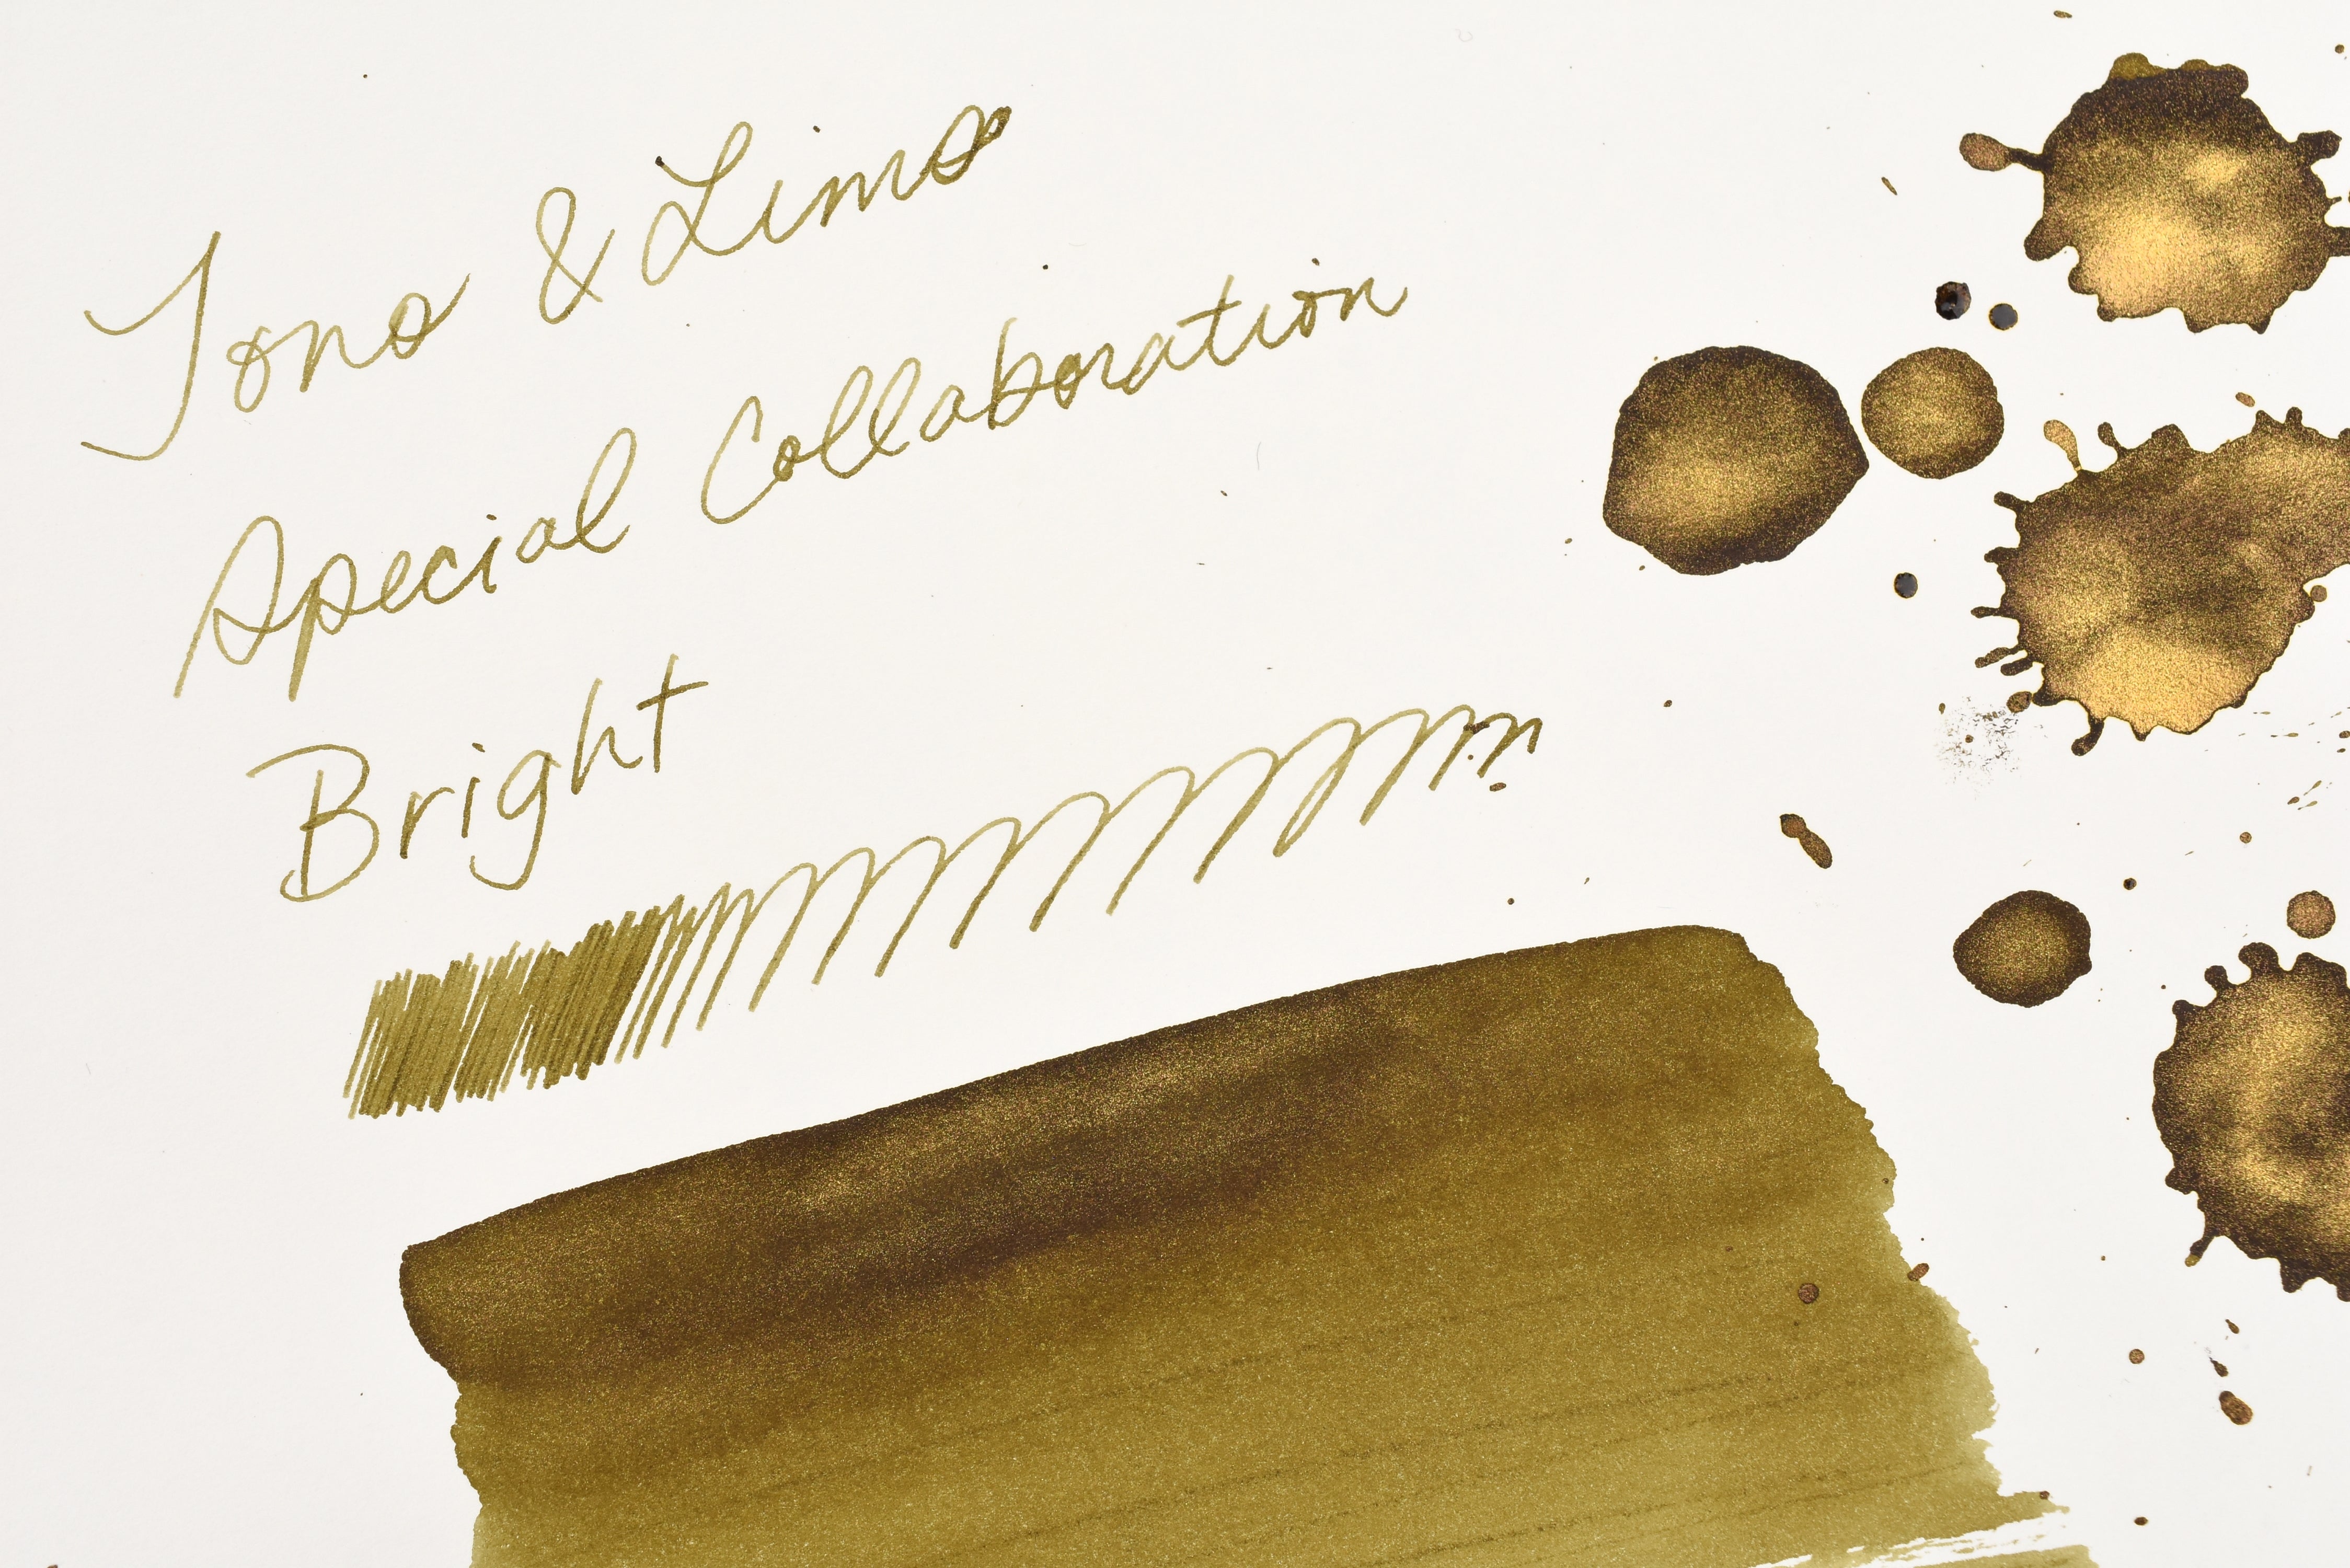 Tono & Lims
Special Collaboration
Bright